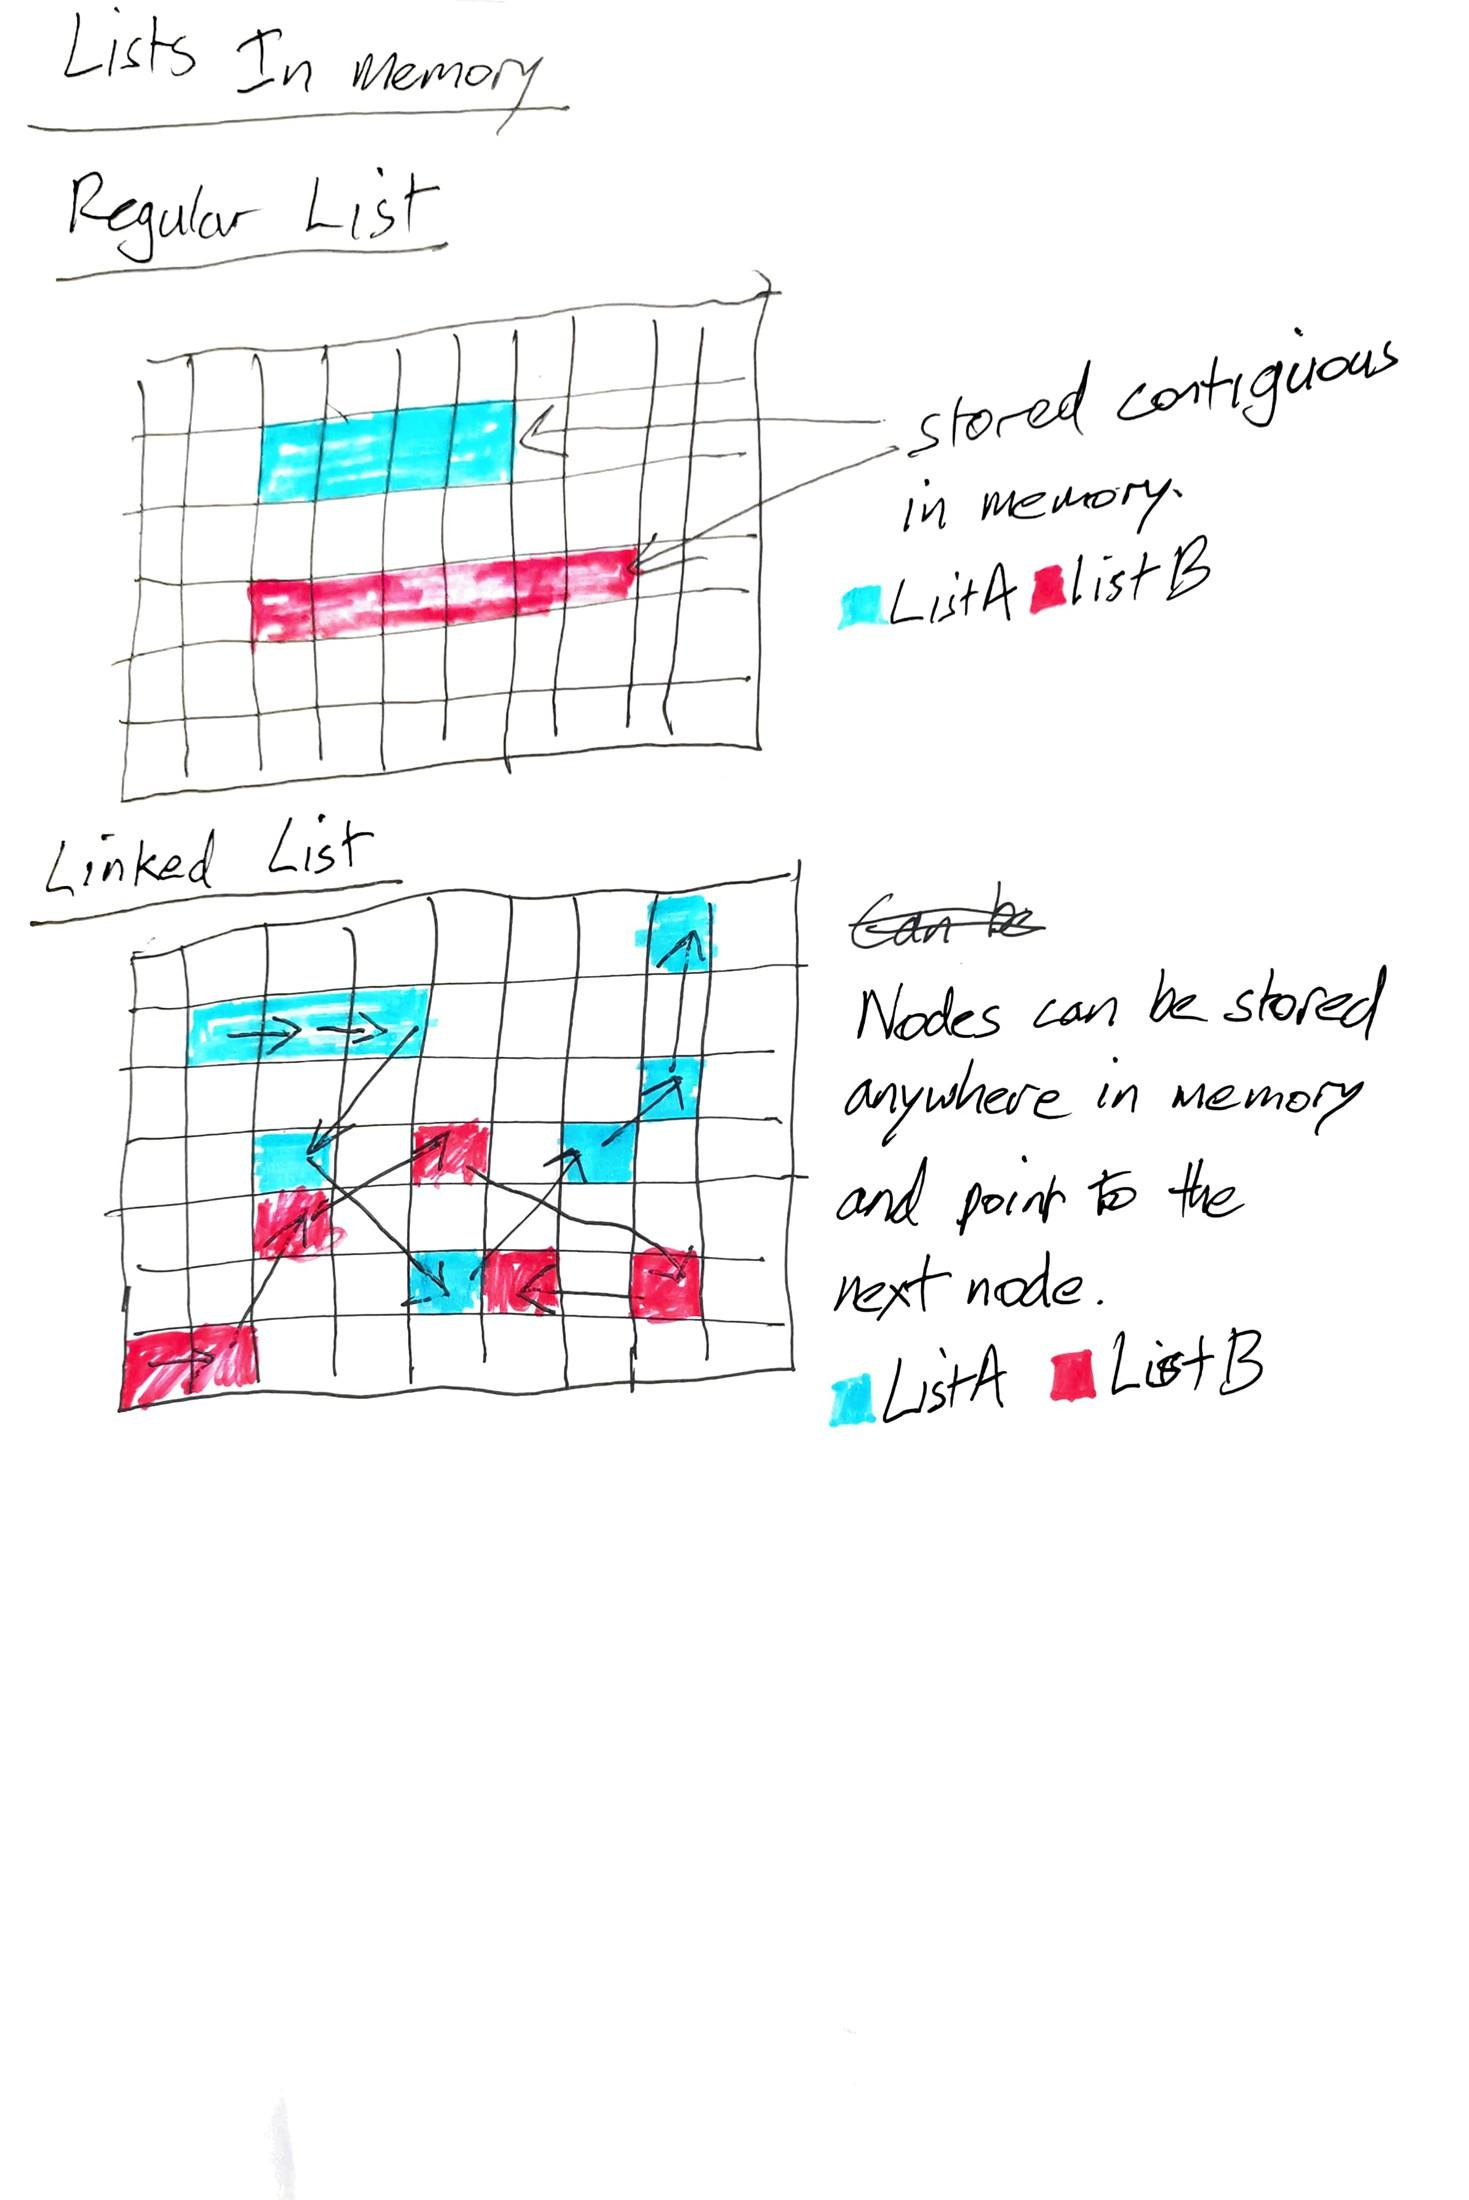 Lists In Memory
Regular List
stored contiguous
in memory.
ListA listB
Linked List
Can be
Nodes can be stored
anywhere in memory
and point to the
next node.
ListA ListB